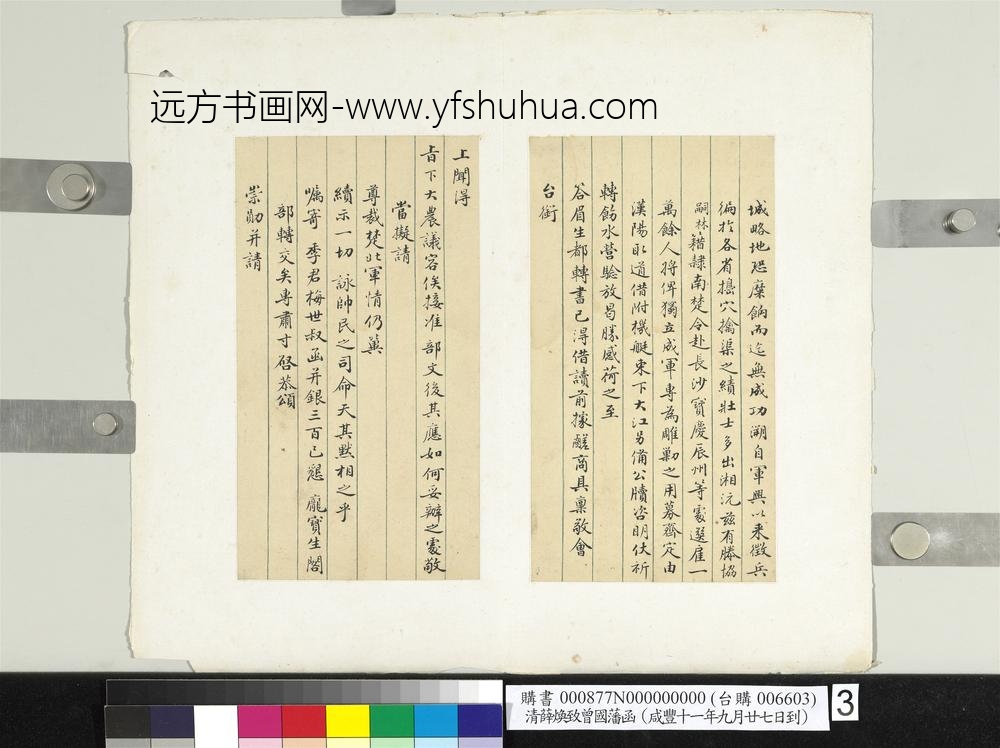 远方书画网-www.yfshuhua.com
城略地恐糜餉而迄無成功溯自軍興以来徵兵
徧於各省搗穴擒渠之績壯士多出湘沅茲有滕協
嗣林籍隸南楚令赴長沙寶慶辰州等處選雇一
萬餘人將俾獨立成軍專為雕勦之用募齊定由
漢陽取道借附機艇東下大江另備公牘咨明伏祈
轉飭水營驗放曷勝感荷之至
谷眉生都轉書已得借讀前據鹺商具稟敬會
台銜
上聞得
旨下大農議容俟接准部文後其應如何妥辦之處敬
當擬請
尊裁楚北軍情仍冀
續示一切詠帥民之司命天其默相之乎
囑寄季君梅世叔函并銀三百已懇龐寶生閣
部轉交矣專肅寸啓恭頌
崇勛并請
購書 000877N000000000 (台購 006603)
清薛煥致曾國藩函 (咸豐十一年九月廿七日到)
3